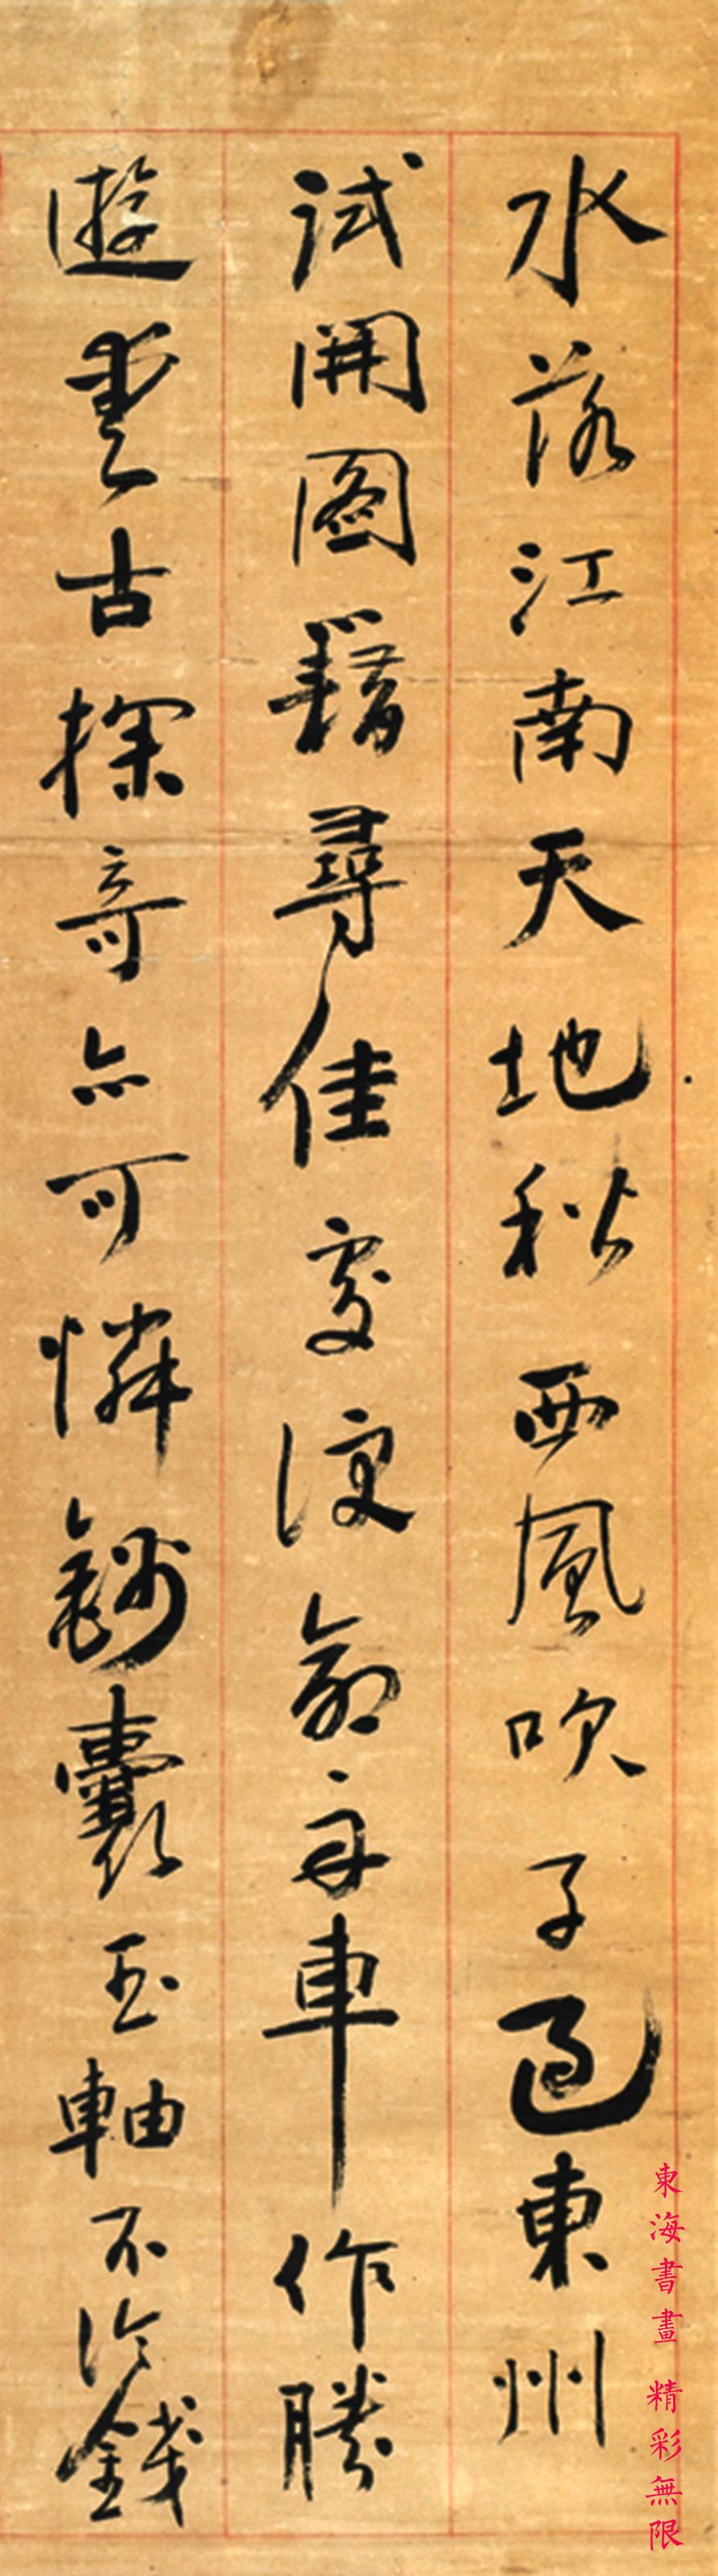 水落江南天地秋西風吹子過東州
試開圖籍尋佳處便命舟車作勝
遊愛古探奇亦可憐錦囊玉軸不論錢
東海書畫 精彩無限